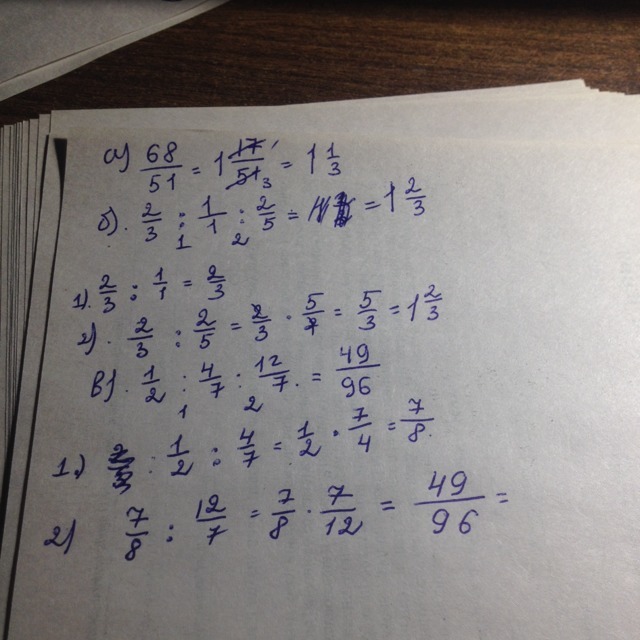 а) 68/51 = 1 17/51 = 1 1/3
б). 2/3 : 1/1 : 2/5 = = 1 2/3
1 2
1). 2/3 : 1/1 = 2/3
2). 2/3 : 2/5 = 2/3 · 5/2 = 5/3 = 1 2/3
в). 1/2 : 4/7 : 12/7. = 49/96
1 2
1.) : 1/2 : 4/7 = 1/2 · 7/4 = 7/8.
2) 7/8 : 12/7 = 7/8 · 7/12 = 49/96 =